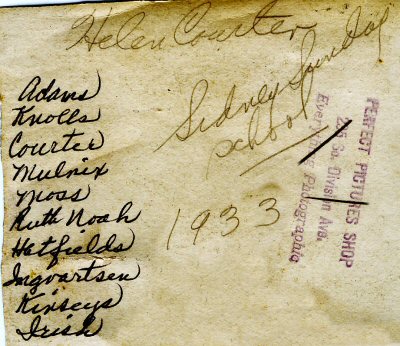 Helen Courter
Sidney Sunday
School
1933
Adams
Knolls
Courter
Mulnix
Moss
Ruth Noah
Hatfields
Ingvartsen
Kinseys
Irish
PERFECT PICTURES SHOP
So. Division Ave.
Everything Photographic